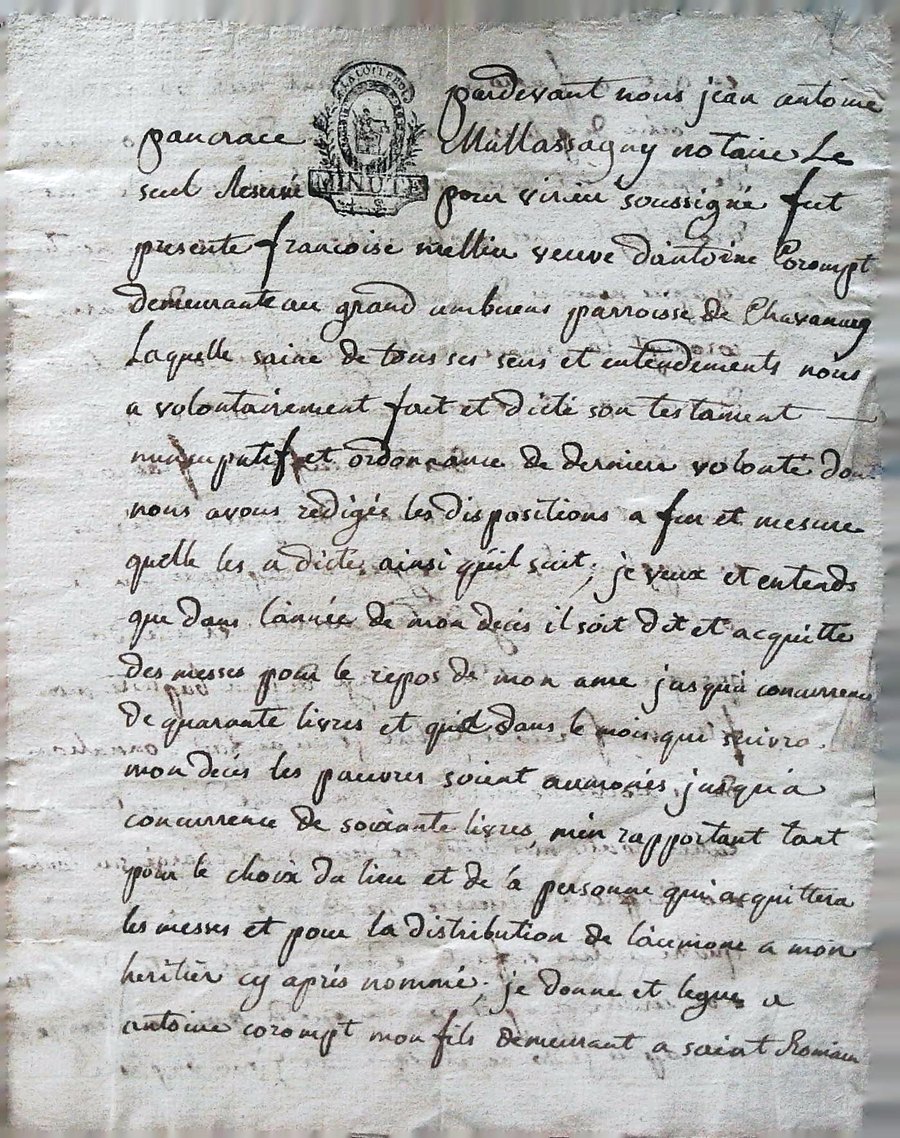 pardevant nous jean antoine
pancrace Mullassagny notaire Le
MINUTE
seul Reservé pour virieu soussigné fut
presente francoise mellin veuve dantoine Corompt
demeurante au grand embuens parroisse de Chavannay
Laquelle saine de tous ses sens et entendements nous
a volontairement fait et dicté son testament
nuncupatif et ordonnance de derniere volonté don
nous avons redigés les dispositions a fur et mesure
quelle les a dicté, ainsi qu'il suit; je veux et entends
que dans l'année de mon decés il soit dit et acquitté
des messes pour le repos de mon ame jusqu'a concurrence
de quarante livres et que dans le mois qui suivra
mon decés les pauvres soient aumonés jusqu'a
concurrence de soixante livres, m'en rapportant tant
pour le choix du lieu et de la personne qui acquittera
les messes et pour la distribution de l'aumone a mon
heritier cy aprés nommé; je donne et legue a
antoine corompt mon fils demeurant a saint Romain